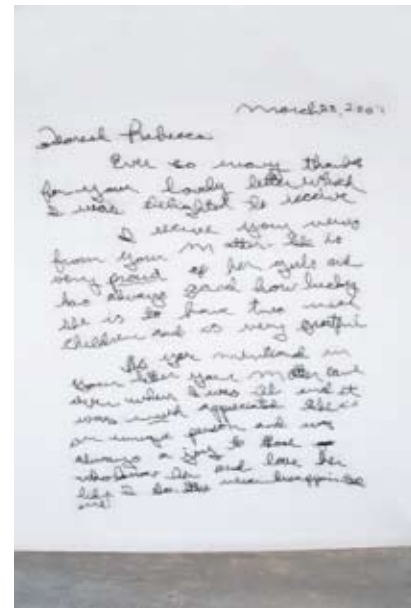 March 20, 200
Dearest Rebecca
Ever so many thanks
for your lovely letter which
I was delighted to receive
I receive your news
from your Mother. She is
very proud of her girls and
has always said how lucky
she is to have two nice
children and is very grateful
As you mentioned in
your letter your Mother came
over when I was ill and it
was much appreciated. She is
an unique person and was
always a joy to those
who know her and love her
like I do. She never disappointed
me!